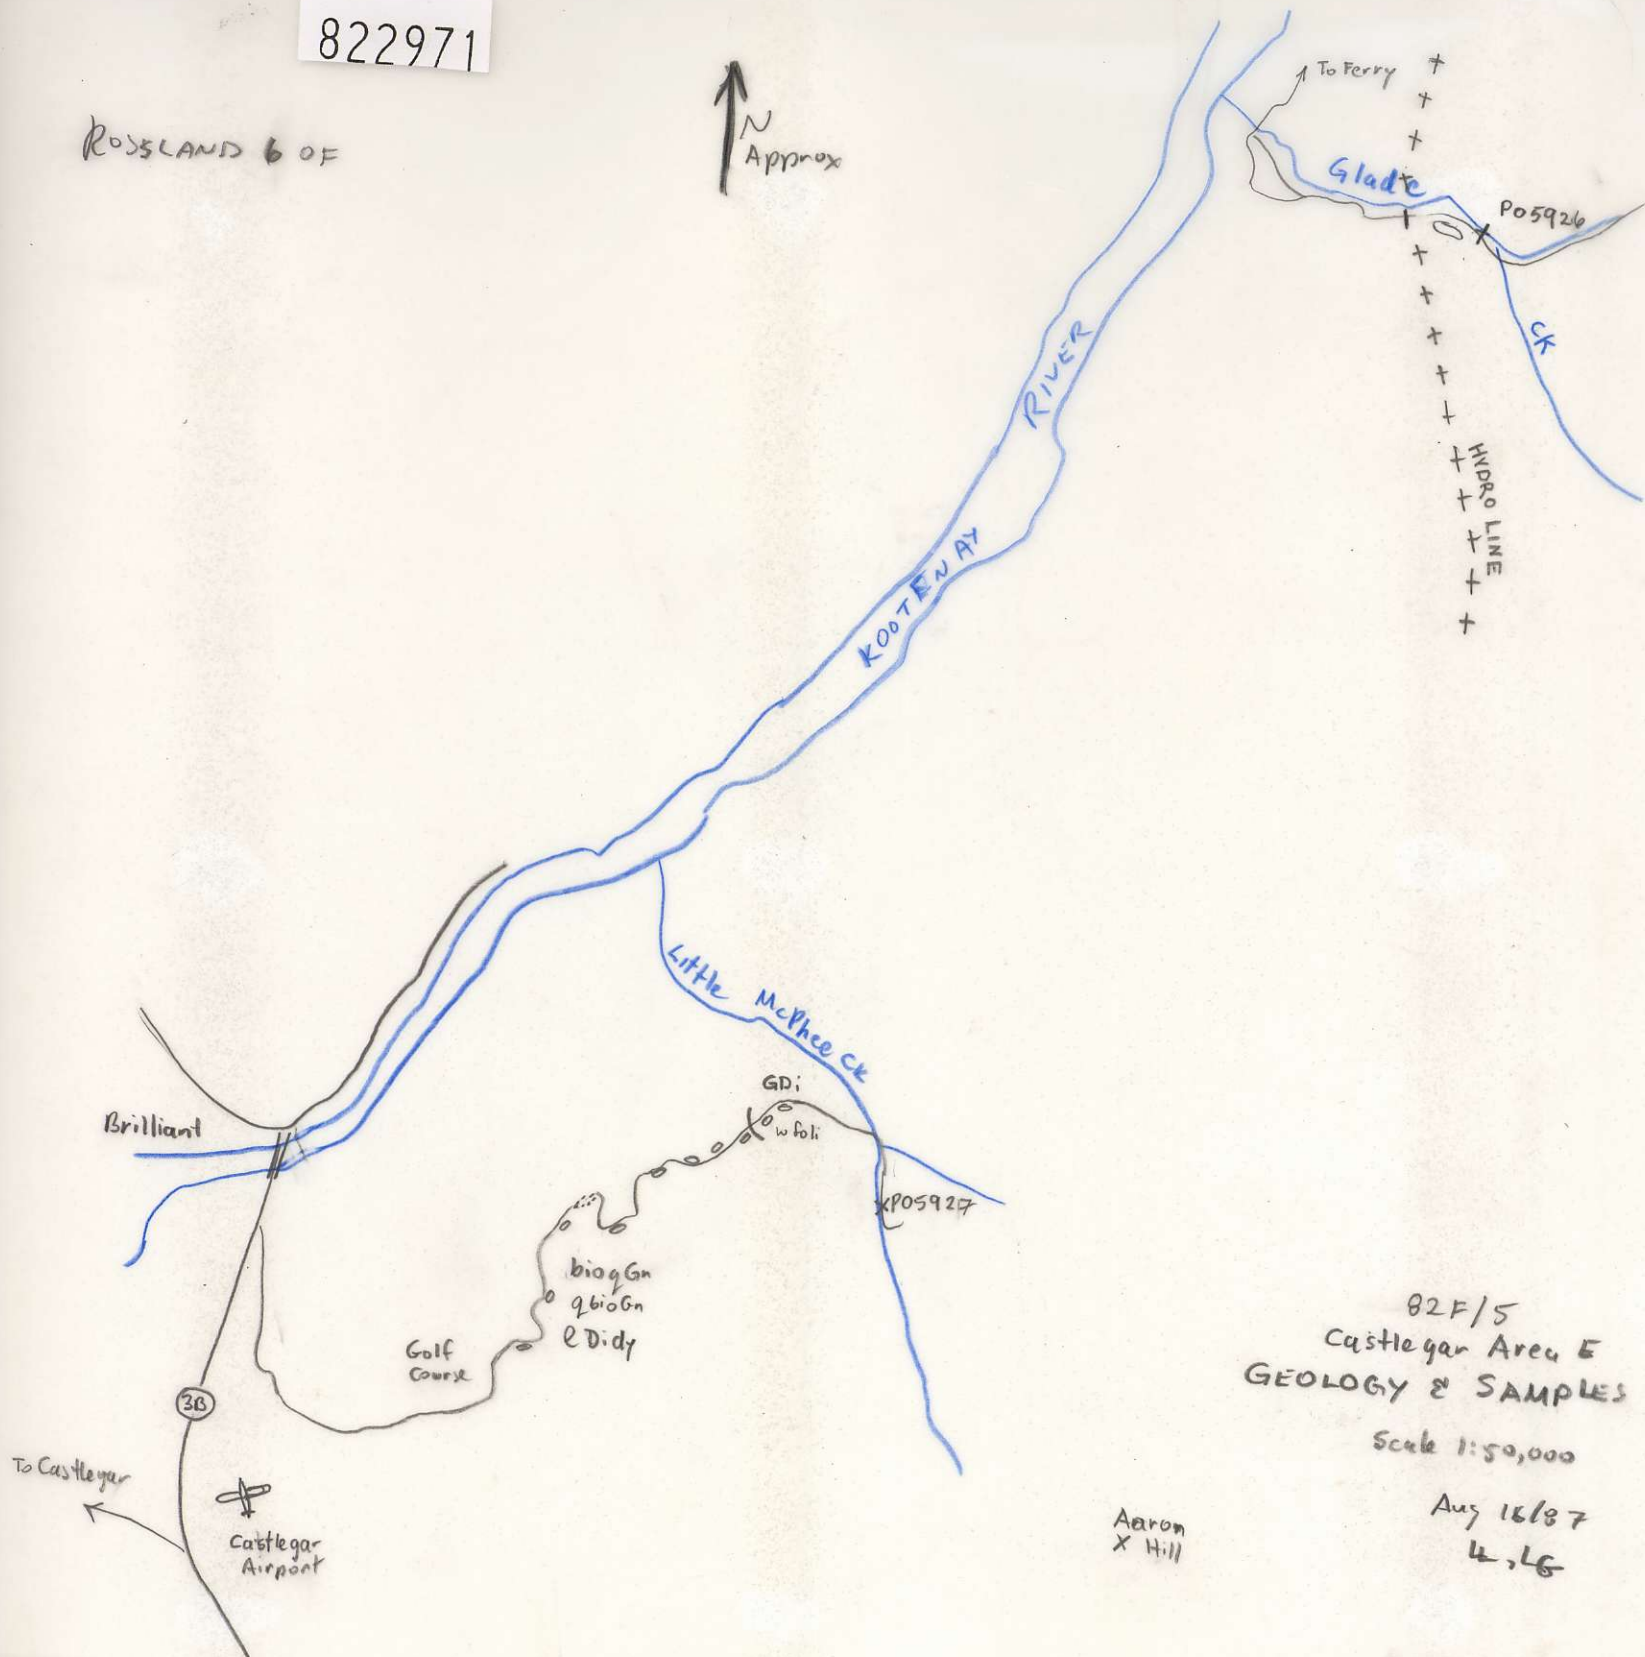 822971
ROSSLAND 6 OF
N
Approx
To Ferry
Glade
P05926
CK
HYDRO LINE
KOOTENAY RIVER
Little McPhee CK
GDi
w foli
Brilliant
XP05927
bioqGn
qbioGn
lDidy
Golf
Course
3B
To Castlegar
Castlegar
Airport
Aaron
X Hill
82F/5
Castlegar Area E
GEOLOGY & SAMPLES
Scale 1:50,000
Aug /87